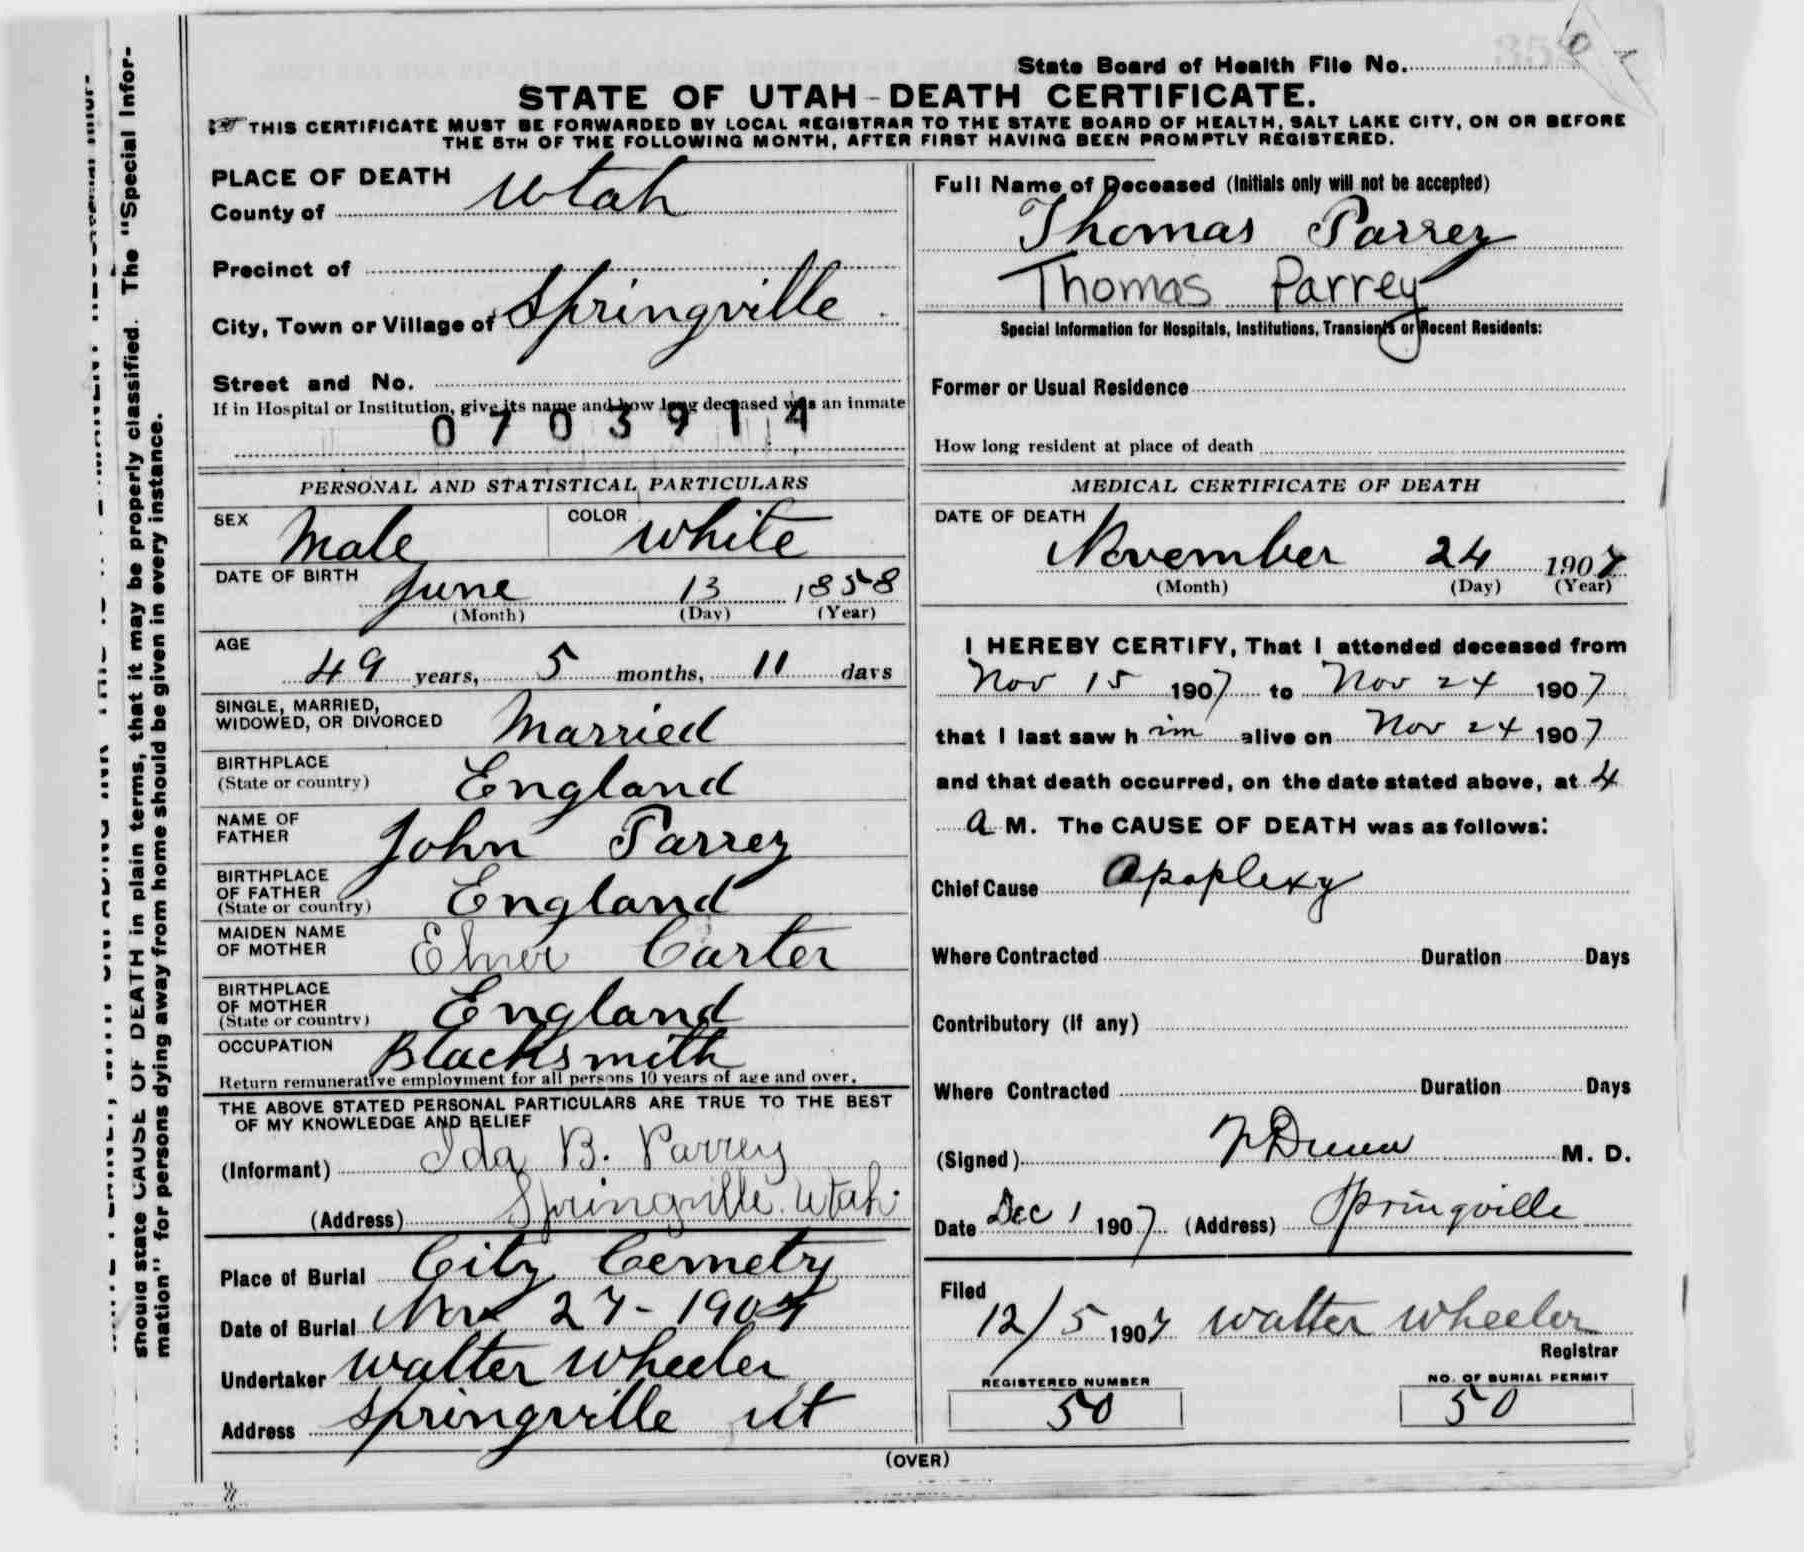 State Board of Health File No.
STATE OF UTAH - DEATH CERTIFICATE.
THIS CERTIFICATE MUST BE FORWARDED BY LOCAL REGISTRAR TO THE STATE BOARD OF HEALTH, SALT LAKE CITY, ON OR BEFORE
THE 5TH OF THE FOLLOWING MONTH, AFTER FIRST HAVING BEEN PROMPTLY REGISTERED.
should state CAUSE OF DEATH in plain terms, that it may be properly classified. The "Special Infor-
mation" for persons dying away from home should be given in every instance.
PLACE OF DEATH
County of Utah
Precinct of
City, Town or Village of Springville
Street and No.
If in Hospital or Institution, give its name and how long deceased was an inmate
0703914
PERSONAL AND STATISTICAL PARTICULARS
SEX Male COLOR White
DATE OF BIRTH June 13 1858
(Month) (Day) (Year)
AGE
49 years, 5 months, 11 days
SINGLE, MARRIED,
WIDOWED, OR DIVORCED Married
BIRTHPLACE
(State or country) England
NAME OF
FATHER John Parrey
BIRTHPLACE
OF FATHER
(State or country) England
MAIDEN NAME
OF MOTHER Carter
BIRTHPLACE
OF MOTHER
(State or country) England
OCCUPATION Blacksmith
Return remunerative employment for all persons 10 years of age and over.
THE ABOVE STATED PERSONAL PARTICULARS ARE TRUE TO THE BEST
OF MY KNOWLEDGE AND BELIEF
(Informant) Ida B. Parrey
(Address) Springville. Utah.
Place of Burial City Cemetry
Date of Burial Nov 27 - 1907
Undertaker Walter Wheeler
Address Springville Ut
Full Name of Deceased (Initials only will not be accepted)
Thomas Parrey
Thomas Parrey
Special Information for Hospitals, Institutions, Transients or Recent Residents:
Former or Usual Residence
How long resident at place of death
MEDICAL CERTIFICATE OF DEATH
DATE OF DEATH
November 24 1907
(Month) (Day) (Year)
I HEREBY CERTIFY, That I attended deceased from
Nov 15 1907 to Nov 24 1907
that I last saw him alive on Nov 24 1907
and that death occurred, on the date stated above, at 4
a M. The CAUSE OF DEATH was as follows:
Chief Cause Apoplexy
Where Contracted Duration Days
Contributory (if any)
Where Contracted Duration Days
(Signed) M. D.
Date Dec 1 1907 (Address) Springville
Filed
12/5 1907 Walter Wheeler
Registrar
REGISTERED NUMBER
50
NO. OF BURIAL PERMIT
50
(OVER)